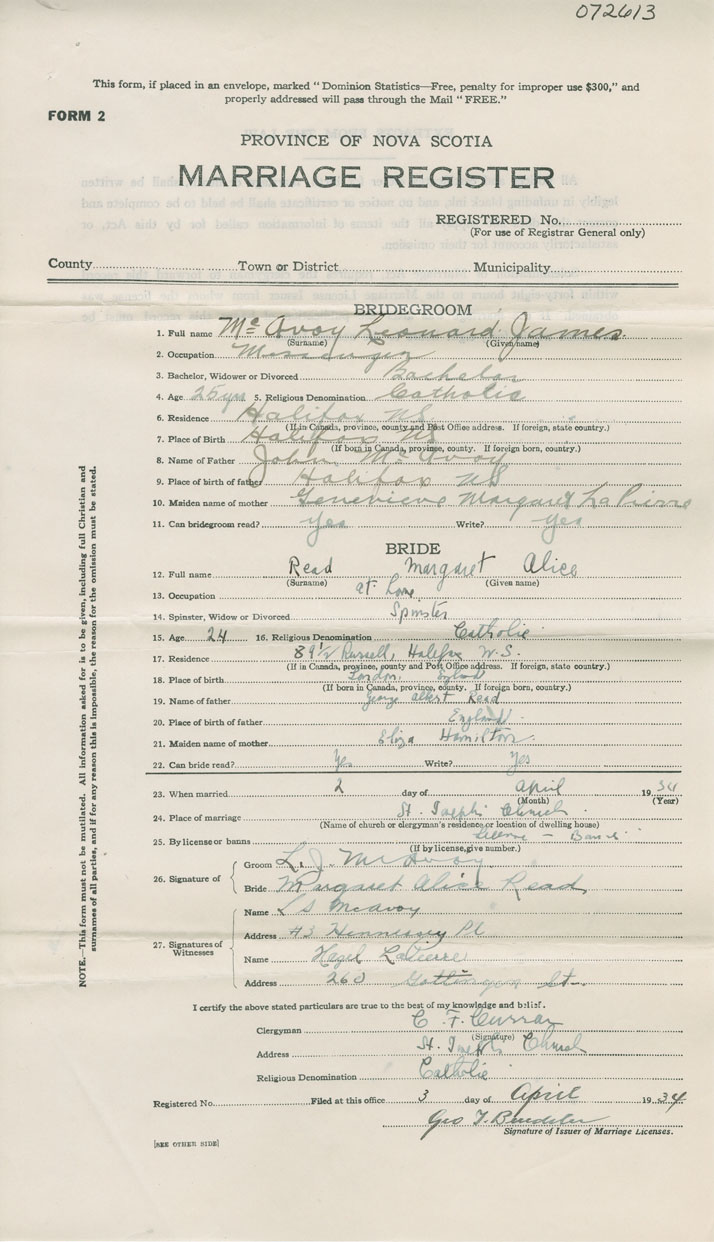 072613
This form, if placed in an envelope, marked "Dominion Statistics—Free, penalty for improper use $300," and
properly addressed will pass through the Mail "FREE."
FORM 2
PROVINCE OF NOVA SCOTIA
MARRIAGE REGISTER
REGISTERED No.
(For use of Registrar General only)
County Town or District Municipality
BRIDEGROOM
1. Full name McAvoy Leonard James
(Surname) (Given name)
2. Occupation Messenger
3. Bachelor, Widower or Divorced Bachelor
4. Age 25 yrs 5. Religious Denomination Catholic
6. Residence Halifax NS
(If in Canada, province, county and Post Office address. If foreign, state country.)
7. Place of Birth Halifax NS
(If born in Canada, province, county. If foreign born, country.)
8. Name of Father John McAvoy
9. Place of birth of father Halifax NS
10. Maiden name of mother Genevieve Margaret LaPierre
11. Can bridegroom read? Yes Write? Yes
BRIDE
12. Full name Read Margaret Alice
(Surname) (Given name)
13. Occupation at home
14. Spinster, Widow or Divorced Spinster
15. Age 24 16. Religious Denomination Catholic
17. Residence 89½ Russell, Halifax N.S.
(If in Canada, province, county and Post Office address. If foreign, state country.)
18. Place of birth London, England
(If born in Canada, province, county. If foreign born, country.)
19. Name of father George Albert Read
20. Place of birth of father England
21. Maiden name of mother Eliza Hamilton
22. Can bride read? Yes Write? Yes
23. When married 2 day of April 1934
(Month) (Year)
24. Place of marriage St. Joseph's Church
(Name of church or clergyman's residence, or location of dwelling house)
25. By license or banns License - Banns
(If by license, give number.)
26. Signature of Groom L. J. McAvoy
Bride Margaret Alice Read
27. Signatures of Witnesses
Name L S McAvoy
Address 43 Hennessey Pl
Name Hazel LaPierre
Address 260 Gottingen St.
I certify the above stated particulars are true to the best of my knowledge and belief.
Clergyman C. F. Curran
(Signature)
Address St. Joseph's Church
Religious Denomination Catholic
Registered No. Filed at this office 3 day of April 1934
Geo T.
Signature of Issuer of Marriage Licenses.
[SEE OTHER SIDE]
NOTE.—This form must not be mutilated. All information asked for is to be given, including full Christian and
surnames of all parties, and if for any reason this is impossible, the reason for the omission must be stated.